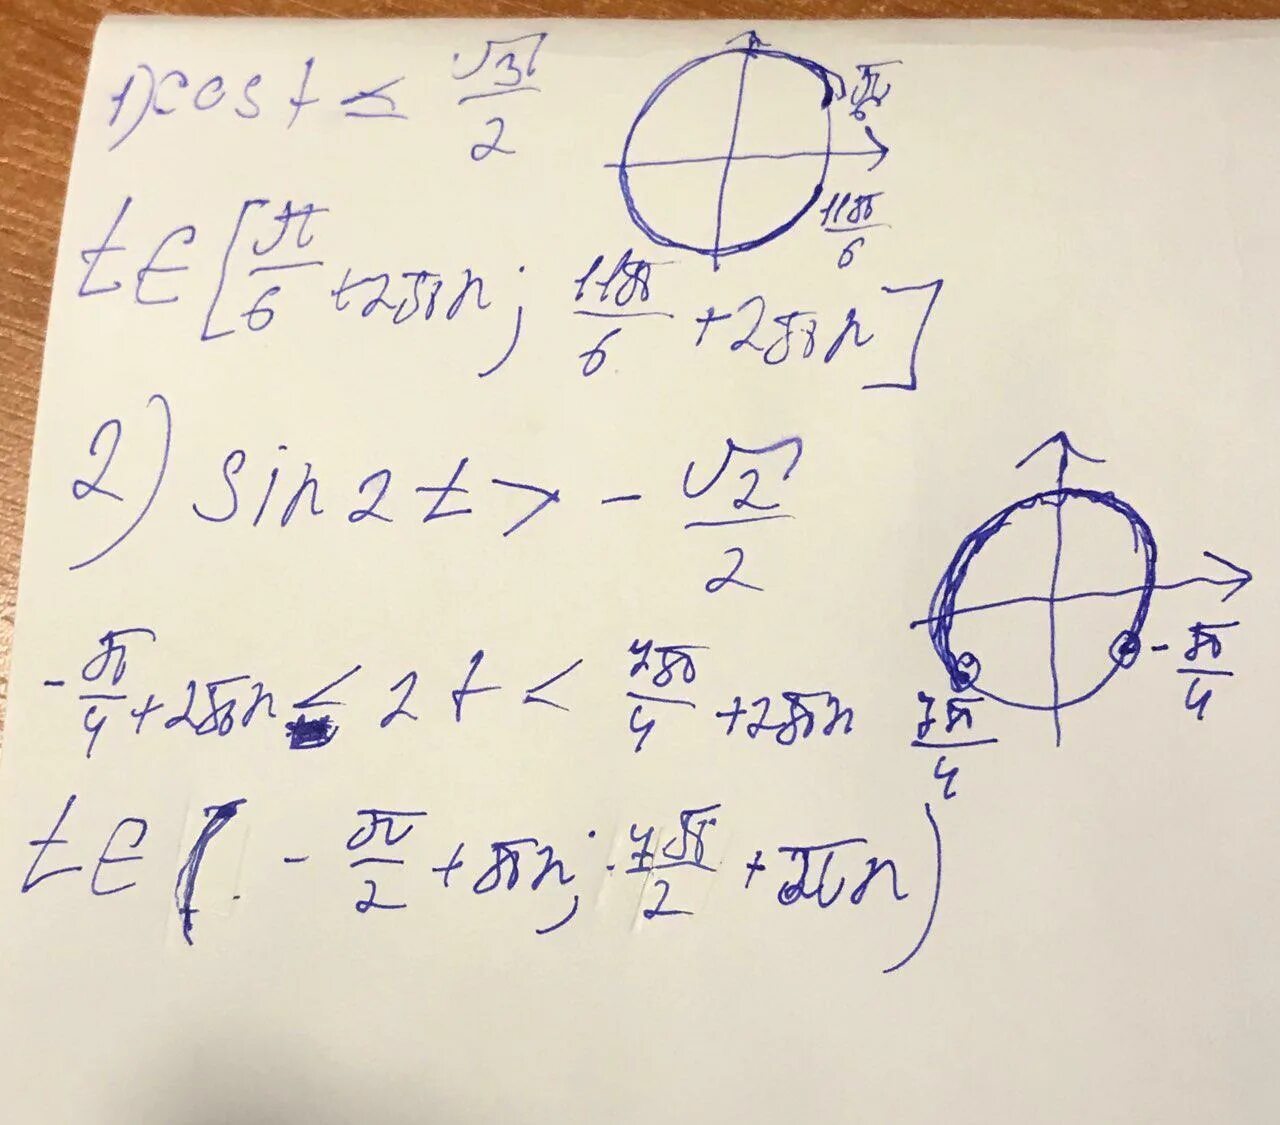 1) cos t ≤ √3/2
π/6
11π/6
t ∈ [π/6 + 2πn; 11π/6 + 2πn]
2) sin 2t > -√2/2
-π/4
7π/4
-π/4 + 2πn < 2t < 7π/4 + 2πn
t ∈ (-π/2 + πn; 7π/2 + πn)